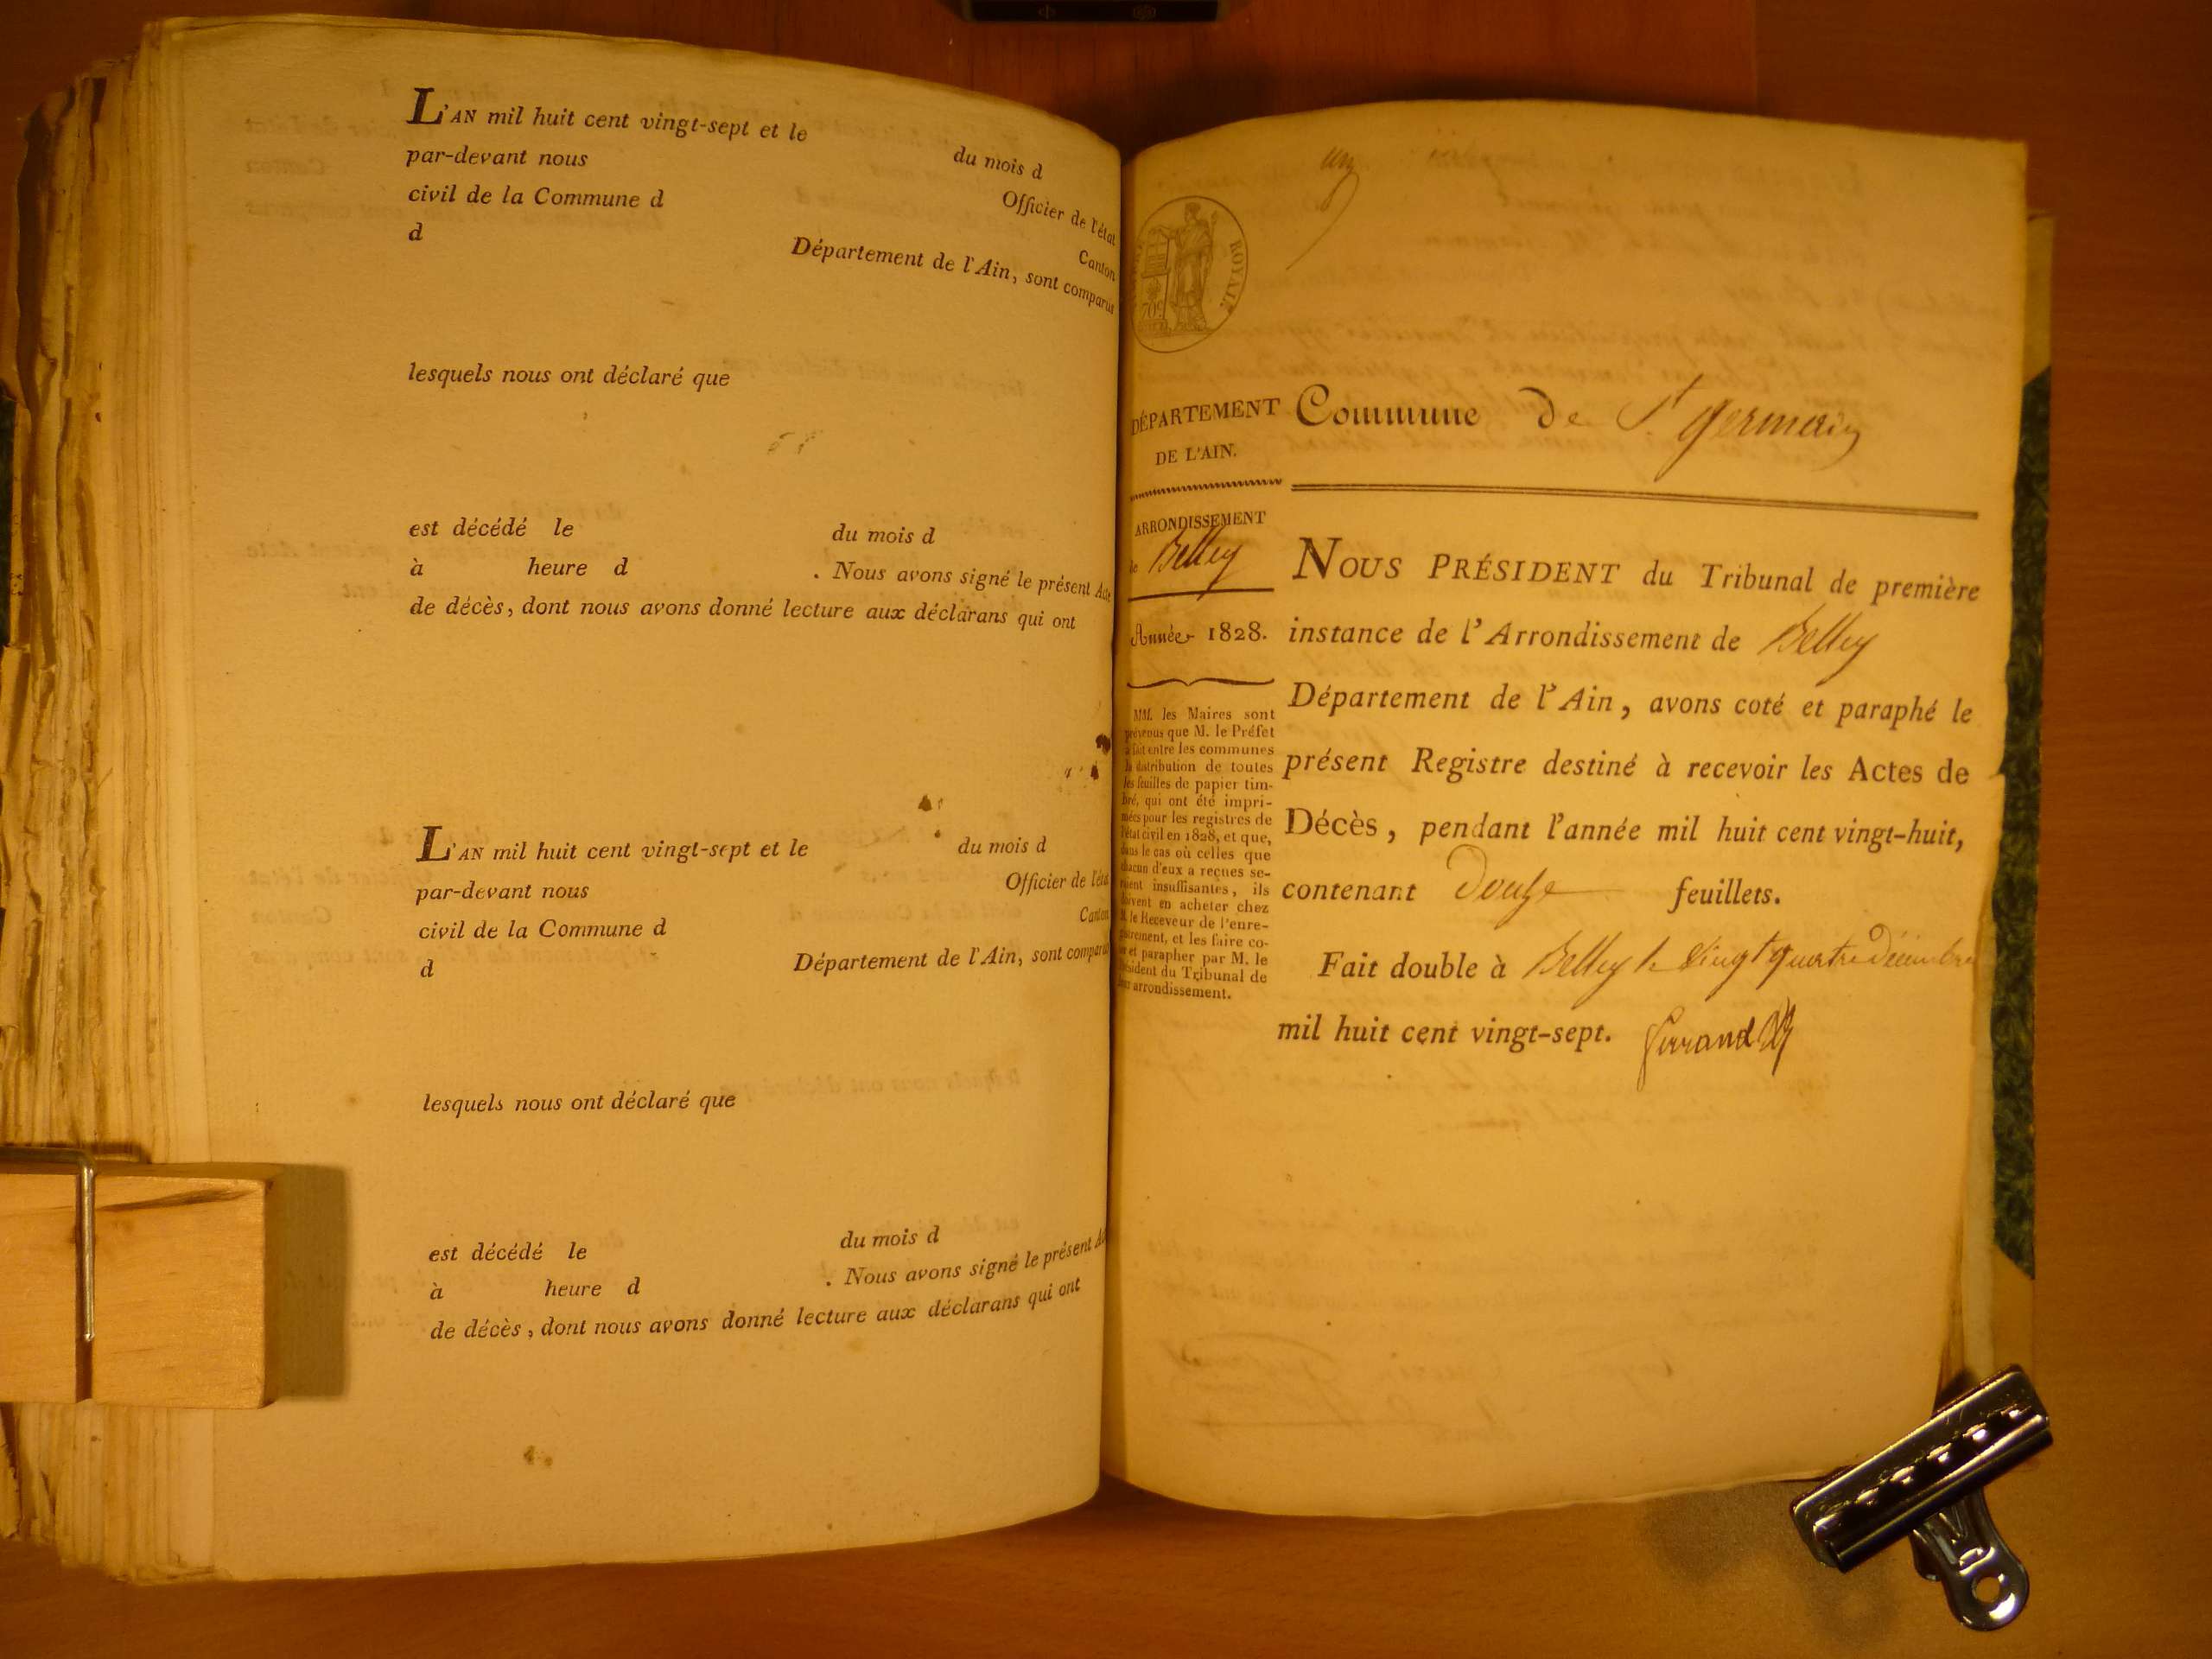 L'AN mil huit cent vingt-sept et le du mois d
par-devant nous Officier de l'état
civil de la Commune d Canton
d Département de l'Ain, sont comparus
lesquels nous ont déclaré que
est décédé le du mois d
à heure d . Nous avons signé le présent Acte
de décès, dont nous avons donné lecture aux déclarans qui ont
L'AN mil huit cent vingt-sept et le du mois d
par-devant nous Officier de l'état
civil de la Commune d Canton
d Département de l'Ain, sont comparus
lesquels nous ont déclaré que
est décédé le du mois d
à heure d . Nous avons signé le présent Ac
de décès, dont nous avons donné lecture aux déclarans qui ont
un
ROYALE
DÉPARTEMENT
DE L'AIN.
ARRONDISSEMENT
de Belley
Année 1828.
MM. les Maires sont
prévenus que M. le Préfet
a fait entre les communes
la distribution de toutes
les feuilles de papier tim-
bré, qui ont été impri-
mées pour les registres de
l'état civil en 1828, et que,
dans le cas où celles que
chacun d'eux a reçues se-
roient insuffisantes, ils
doivent en acheter chez
M. le Receveur de l'enre-
gistrement, et les faire co-
ter et parapher par M. le
Président du Tribunal de
leur arrondissement.
Commune de St germain
NOUS PRÉSIDENT du Tribunal de première
instance de l'Arrondissement de Belley
Département de l'Ain, avons coté et paraphé le
présent Registre destiné à recevoir les Actes de
Décès, pendant l'année mil huit cent vingt-huit,
contenant Douze feuillets.
Fait double à Belley le vingt quatre Décembre
mil huit cent vingt-sept.